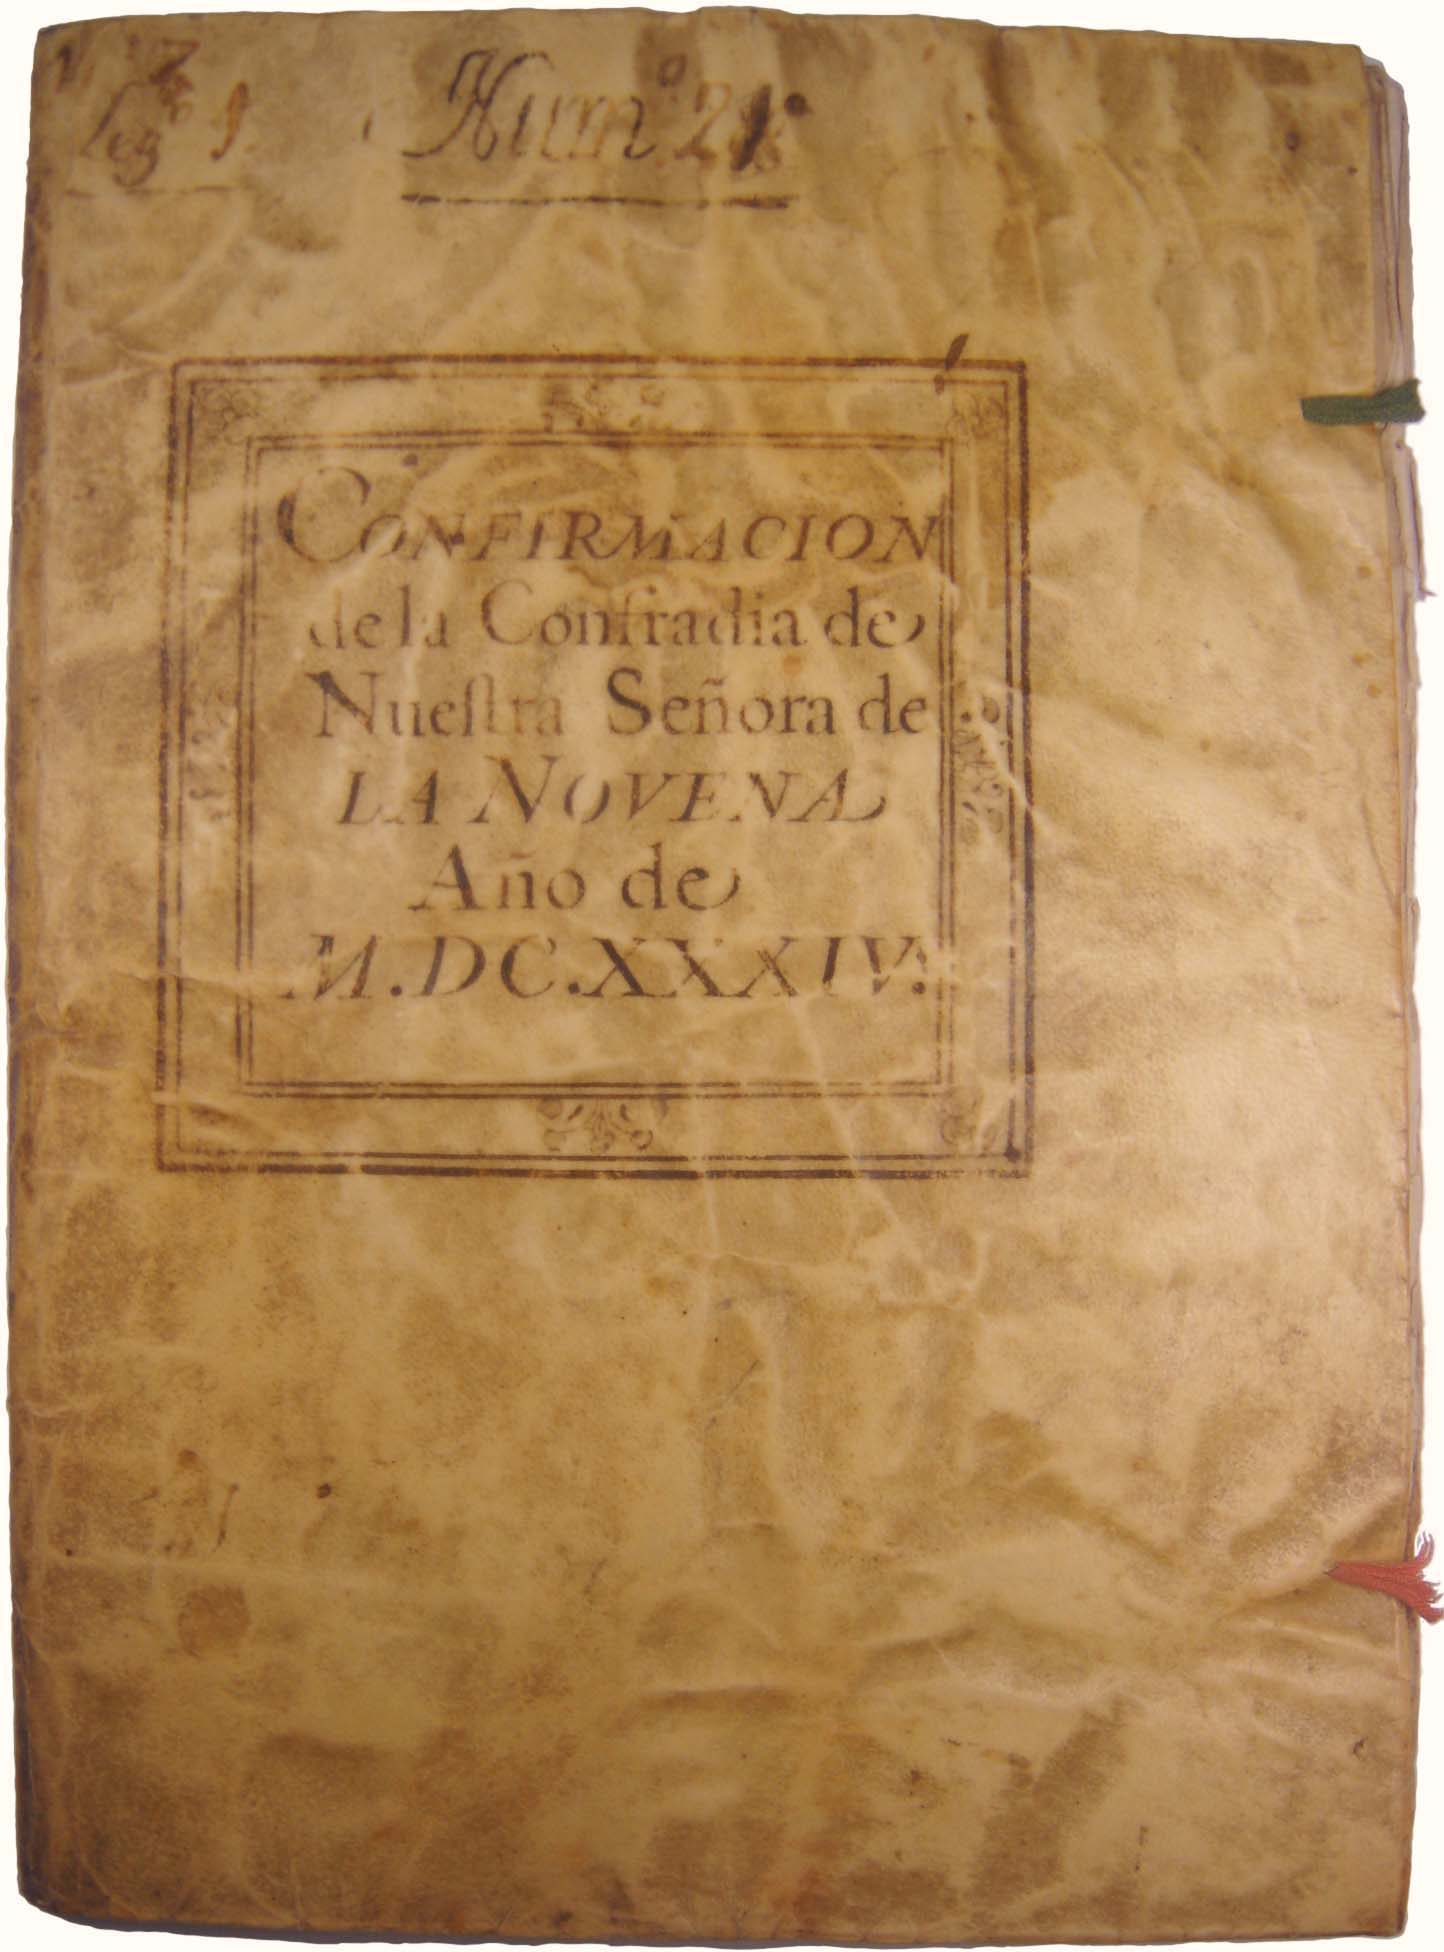 Leg.º 1.
Num.º 21.
CONFIRMACION
de la Confradia de
Nueſtra Señora de
LA NOVENA
Año de
M.DC.XXXIV.